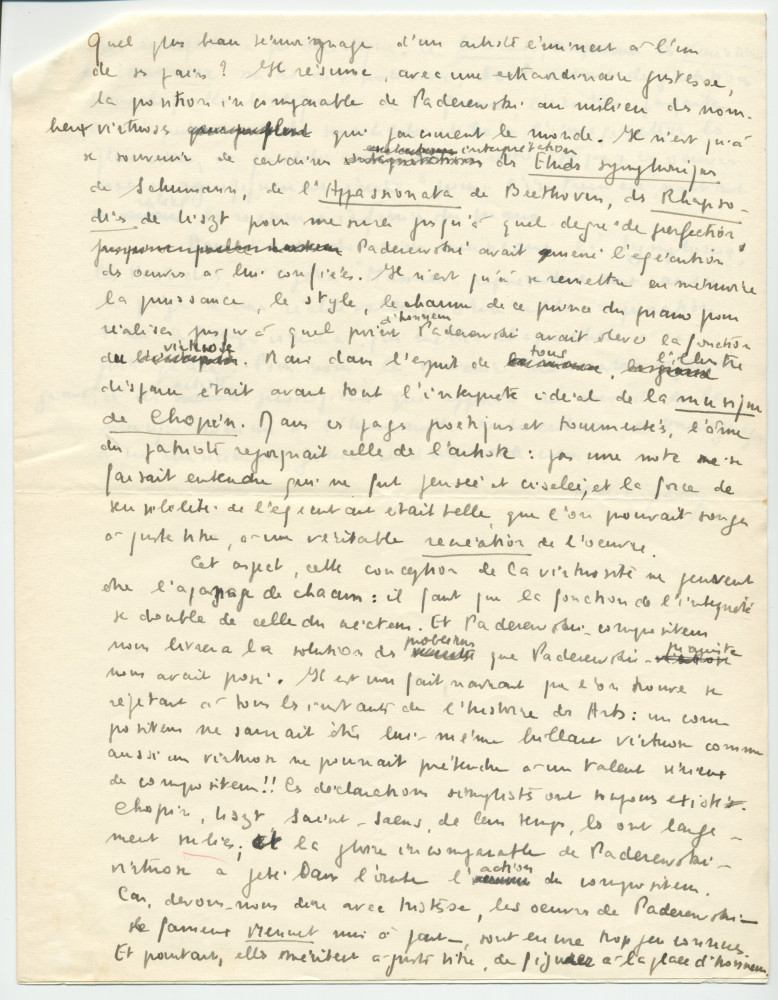 Quel plus beau témoignage d'un artiste éminent à l'un
de ses pairs ? Il résume, avec une extraordinaire justesse,
la position incomparable de Paderewski au milieu des nom-
breux virtuoses qui parcourent le monde. Il n'est qu'à
se souvenir de certaines interprétation des Etudes symphoniques
de Schumann, de l'Appassionata de Beethoven, des Rhapso-
dies de Liszt pour mesurer jusqu'à quel degré de perfection
Paderewski avait amené l'exécution
des oeuvres à lui confiées. Il n'est qu'à se remettre en mémoire
la puissance, le style, le charme de ce prince du piano pour
réaliser jusqu'à quel point d'honneur Paderewski avait élevé la fonction
du virtuose. Mais dans l'esprit de tous, l'illustre
disparu était avant tout l'interprète idéal de la musique
de Chopin. Dans ces pages poétiques et tourmentées, l'âme
du patriote rejoignait celle de l'artiste : pas une note ne se
faisait entendre qui ne fut pensée et ciselée, et la force de
sensibilité de l'exécutant était telle, que l'on pouvait songer
à juste titre, à une véritable recréation de l'oeuvre.
Cet aspect, cette conception de la virtuosité ne peuvent
être l'apanage de chacun : il faut que la fonction de l'interprète
se double de celle du créateur. Et Paderewski-compositeur
nous livrera la solution des problèmes que Paderewski-pianiste
nous avait posé. Il est un fait navrant que l'on trouve se
répétant à tous les instants de l'histoire des Arts : un com
positeur ne saurait être lui-même brillant virtuose comme
aussi un virtuose ne pourrait prétendre à un talent sérieux
de compositeur !! Ces déclarations simplistes ont toujours existé.
Chopin, Liszt, Saint-Saens, de leur temps, les ont large-
ment subies ; et la gloire incomparable de Paderewski-
virtuose a jeté dans l'ombre l'action du compositeur.
Car, devons-nous dire avec tristesse, les oeuvres de Paderewski -
le fameux Menuet mis à part -, sont encore trop peu connues.
Et pourtant, elles méritent à juste titre, de figurer à la place d'honneur.